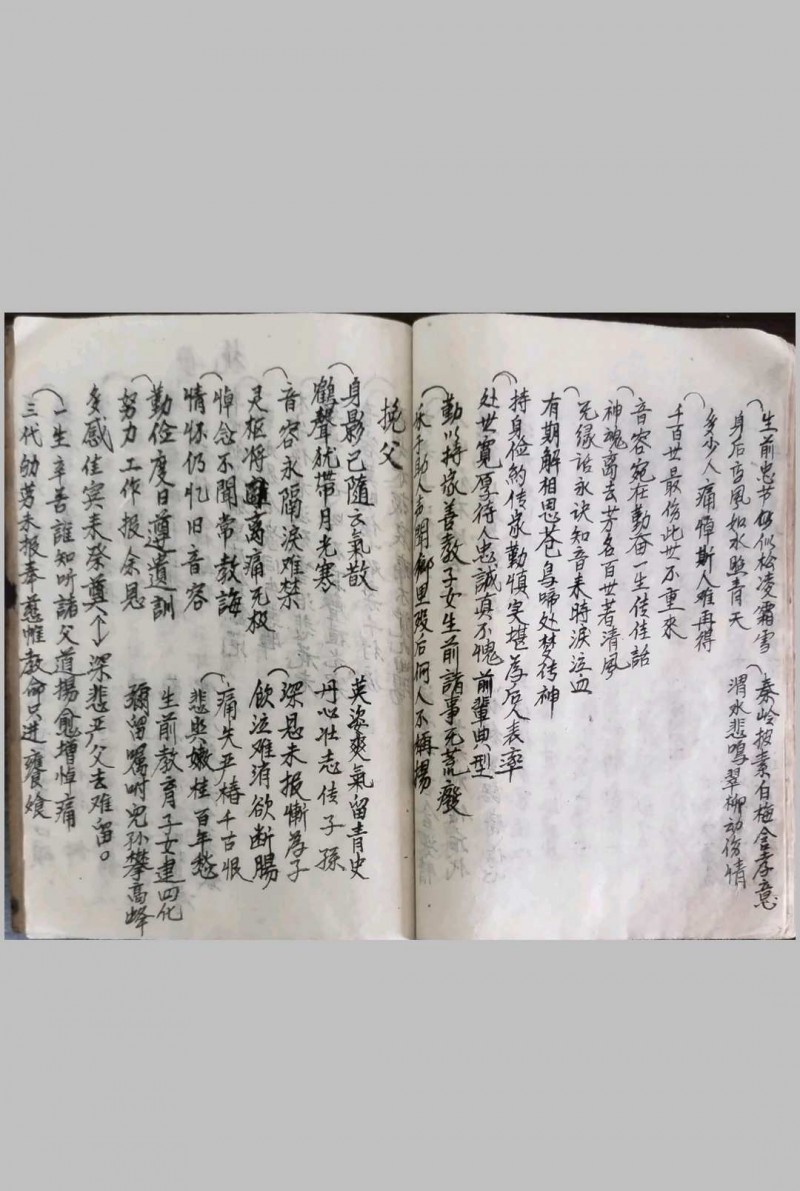 生前忠节仍似松凌霜雪
身后高风如水照青天
多少人痛悼斯人难再得
千百世最伤此世不重來
音容宛在勤奋一生传佳話
神魂离去芳名百世著清風
无缘話永诀知音来時淚泣血
有期解相思苍鳥啼处梦传神
持身俭約传家勤慎实堪為后人表率
处世寬厚待人忠誠真不愧前輩典型
勤以持家善教子女生前諸事无荒廢
乐于助人声聞鄉里殁后何人不稱揚
秦岭披素白梅含孝意
渭水悲鳴翠柳动伤情
挽父
身影已隨云氣散
鶴聲犹带月光寒
音容永隔淚难禁
灵柩将離离痛无极
悼念不聞常教誨
情怀仍忆旧音容
勤俭度日遵遺訓
努力工作报余恩
多感佳賓来祭奠 深悲严父去难留。
一生辛善誰知听諸父道揚愈增悼痛
三代劬劳未报奉慈帷教命只进饔飧
英姿爽氣留青史
丹心壮志传子孫
深恩未报慚為子
飲泣难消欲断腸
痛失严椿千古恨
悲與嫩桂百年愁
生前教育子女建四化
彌留嘱咐兒孙攀高峰